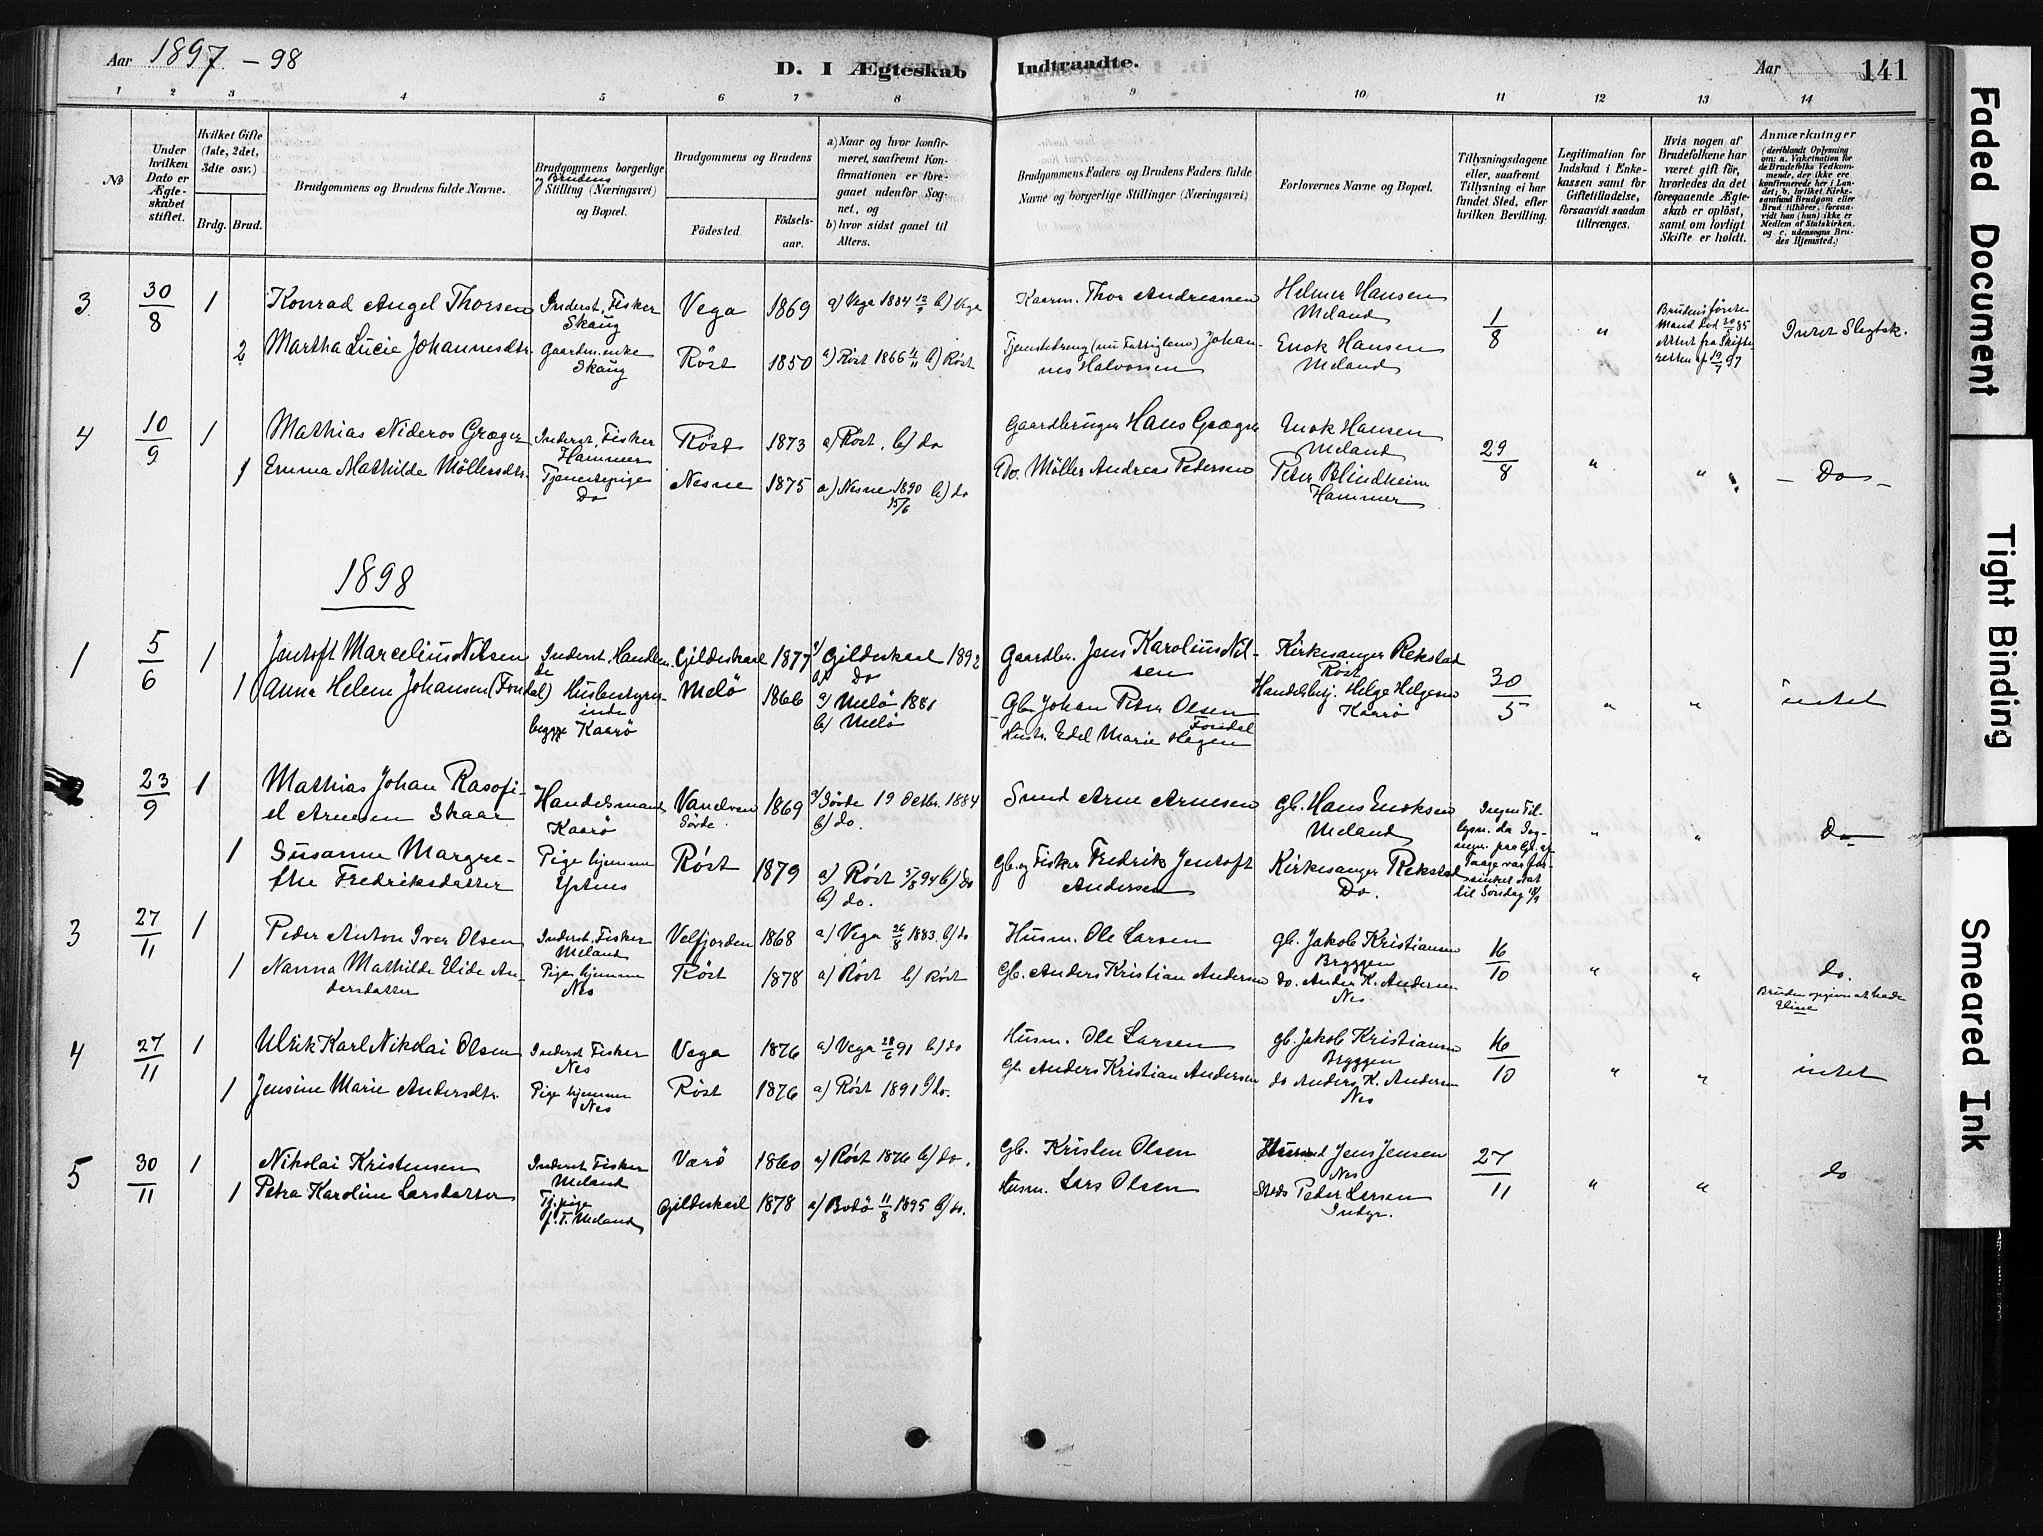 Aar 1897 - 98
D. I Ægteskab Indtraadte.
Aar 141
1 2 3 4 5 6 7 8 9 10 11 12 13 14
No
Under hvilken Dato er Ægteskabet stiftet.
Hvilket Gifte (1ste, 2det, 3die osv.)
Brdg. Brud.
Brudgommens og Brudens fulde Navne.
Brudgommens borgerlige
og Brudens
Stilling (Næringsvei)
og Bopæl.
Brudgommens og Brudens
Fødested. Fødselsaar.
a) Naar og hvor konfirmeret, saafremt Konfirmationen er foregaaet udenfor Sognet, og
b) hvor sidst gaaet til Alters.
Brudgommens Faders og Brudens Faders fulde
Navne og borgerlige Stillinger (Næringsvei)
Forlovernes Navne og Bopæl.
Tillysningsdagene eller, saafremt Tillysning ei har fundet Sted, efter hvilken Bevilling.
Legitimation for Indskud i Enkekassen samt for Giftetilladelse, forsaavidt saadan tiltrænges.
Hvis nogen af Brudefolkene har været gift før, hvorledes da det foregaaende Ægteskab er opløst, samt om lovligt Skifte er holdt.
Anmærkninger
(deriblandt Oplysning om: a. Vakcination for de Brudefolks Vedkommende, der ikke ere konfirmerede her i Landet; b, hvilket Kirkesamfund Brudgom eller Brud tilhører, forsaavidt han (hun) ikke er Medlem af Statskirken, og c. udensogns Brudes Hjemsted.)
3 30/8 1 Konrad Angel Thorsen Inderst, Fisker Skaug Vega 1869 a) Vega 1884 b) Vega Kaarm. Thor Andreassen Helmer Hansen Meland 1/8 " Brudens første Mand død 85 Attest fra Skifteretten af 19/7 97 Intet Slegtsk.
2 Martha Lucie Johannesdtr. Gaardm.enke Skaug Röst 1850 a) Röst 1866 b) Röst Tjenestedreng (nu Fattiglem) Johannes Halvorsen Enok Hansen Meland
4 10/9 1 Mathias Nideros Græger Inderst, Fisker Hammer Röst 1873 a) Röst. b) do Gaardbruger Hans Græger Enok Hansen Meland 29/8 " " - Do -
1 Emma Mathilde Möllersdtr. Tjenestepige Do Nesne 1875 a) Nesne 1890 15/6 b) do Do. Möller Andreas Pedersen Peter Blindheim Hammer
1898
1 5/6 1 Jentoft Marcelius Nilsen Inderst. Handlende Gildeskaal 1877 a) Gildeskaal 1892 b) do Gaardbr. Jens Karolius Nilsen Kirkesanger Rekstad Röst 30/5 " " intet
1 Anna Helene Johansen (Fondal) Husbestyrerinde begge Kaarö Melö 1866 a) Melö 1881 b) Melö Gb. Johan Peter Olsen Fondal Hustr. Edel Marie Hagen Handelsbetj. Helge Helgesen Kaarö
23/9 1 Mathias Johan Rasofiel Arnesen Skaar Handelsmand Kaarö Vanelven Sövde 1869 a) Sövde 19 Octbr. 1884 b) do. Smed Arne Arnesen Gb. Hans Enoksen Meland Ingen Tillysn. da Sogn. paa Gr. af Taage var forsinket Nat til Söndag 18/9 " " Do
1 Susanne Margrethe Fredriksdatter Pige hjemme Ystnes Röst 1879 a) Röst 5/8 94 b) do b) do. Gb. og Fisker Fredrik Jentoft Andersen Kirkesanger Rekstad Do.
3 27/11 1 Peder Anton Iver Olsen Inderst, Fisker Meland Velfjorden 1868 a) Vega 26/8 1883. b) do Husm. Ole Larsen Gb. Jakob Kristiansen Bryggen 16/10 " " do.
1 Nanna Mathilde Elide Andersdatter Pige hjemme Nes Röst 1878 a) Röst b) Röst Gb. Anders Kristian Andersen do. Anders K. Andersen Nes Bruden opgiver at hede Eline
4 27/11 1 Ulrik Karl Nikolai Olsen Inderst Fisker Nes Vega 1876 a) Vega 28/6 91 b) do Husm. Ole Larsen Gb. Jakob Kristiansen Bryggen 16/10 " " intet
1 Jensine Marie Andersdtr. Pige hjemme Nes Röst 1876 a) Röst 1891 b) do. Gb. Anders Kristian Andersen do Anders K. Andersen Nes
5 30/11 1 Nikolai Kristensen Inderst Fisker Meland Værö 1860 a) Röst 1876 b) do. Gb. Kristen Olsen Jens Jensen Nes 27/11 " " do
1 Petra Karoline Larsdatter Tj.pige f.T. Meland Gildeskaal 1878 a) Bodö 11/8 1895 b) do. Husm. Lars Olsen Peder Larsen Indyr.
Faded Document
Tight Binding
Smeared Ink